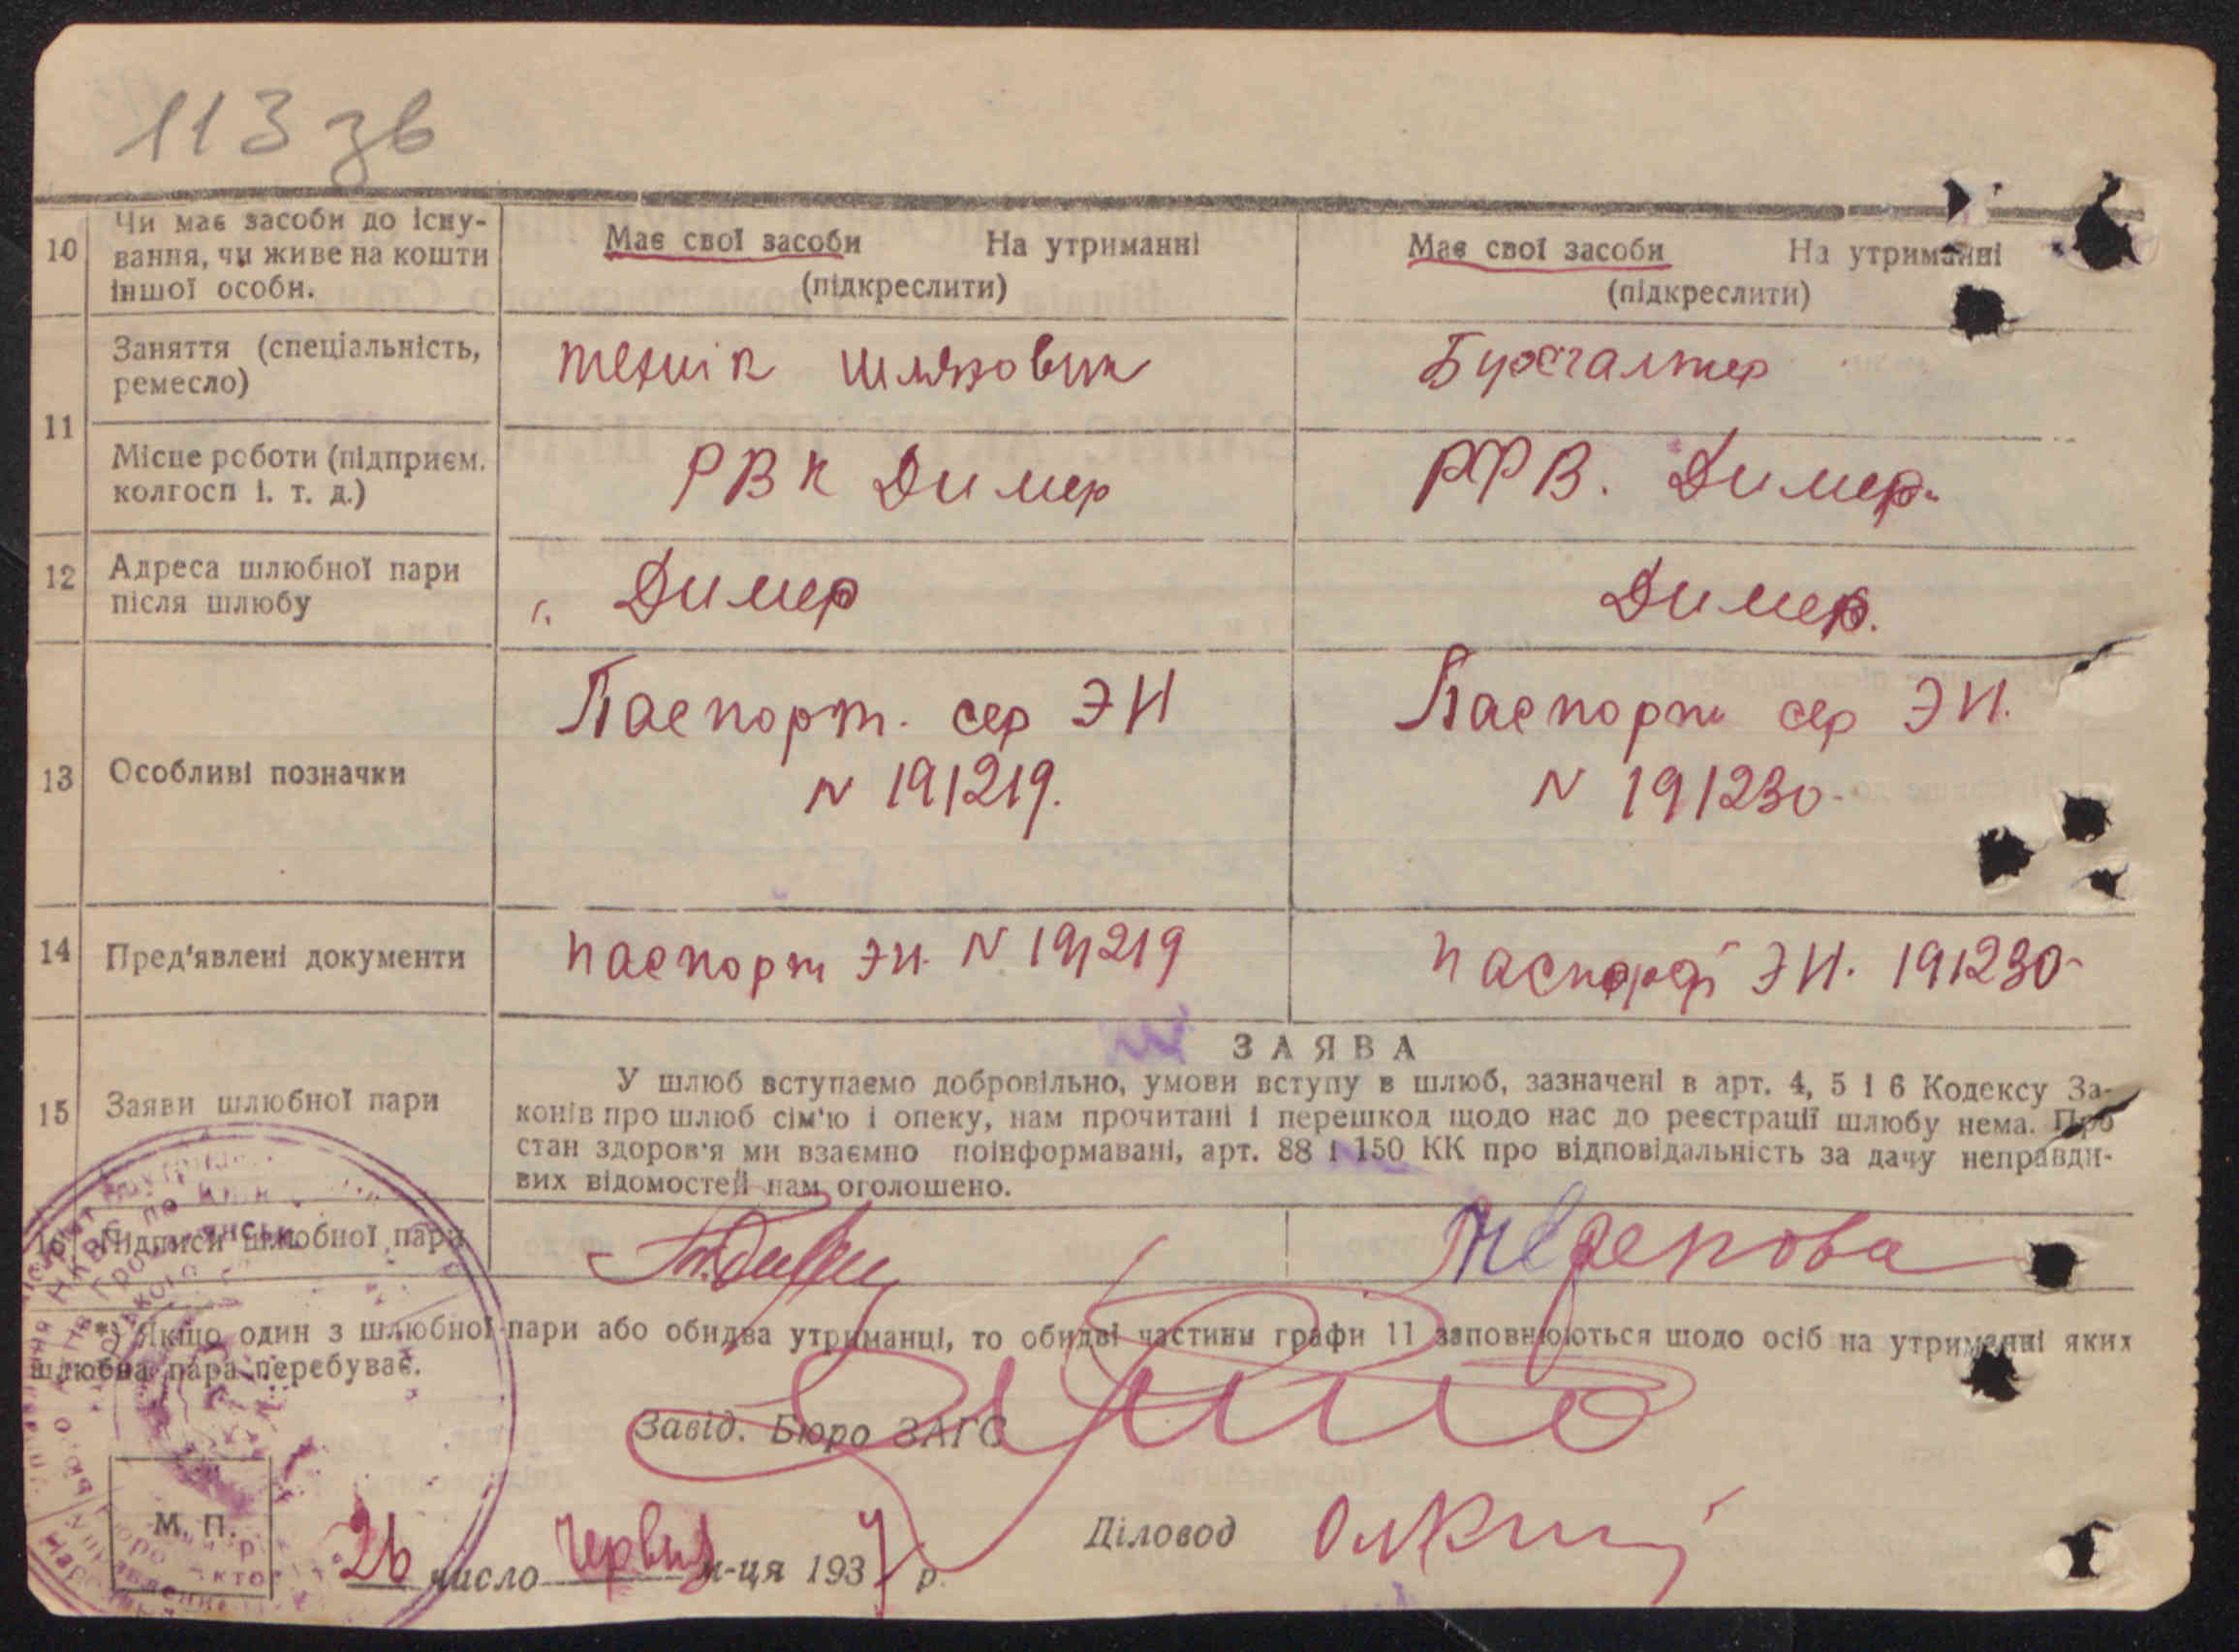 113 зв
10
Чи має засоби до існу-
вання, чи живе на кошти
іншої особи.
Має свої засоби На утриманні
(підкреслити)
Має свої засоби На утриманні
(підкреслити)
11
Заняття (спеціальність,
ремесло)
технік шляховик
Бухгалтер
Місце роботи (підприєм.
колгосп і. т. д.)
РВК Димер
РФВ. Димер.
12
Адреса шлюбної пари
після шлюбу
Димер
Димер.
13
Особливі позначки
Паспорт. сер ЭИ
N 191219.
Паспорт сер ЭИ.
N 191230
14
Пред'явлені документи
паспорт ЭИ. N 191219
паспорт ЭИ. 191230
15
Заяви шлюбної пари
ЗАЯВА
У шлюб вступаємо добровільно, умови вступу в шлюб, зазначені в арт. 4, 5 і 6 Кодексу За-
конів про шлюб сім'ю і опеку, нам прочитані і перешкод щодо нас до реєстрації шлюбу нема. Про
стан здоров'я ми взаємно поінформавані, арт. 88 і 150 КК про відповідальність за дачу неправди-
вих відомостей нам оголошено.
16
Підписи шлюбної пари
*) Якщо один з шлюбної пари або обидва утриманці, то обидві частини графи 11 заповнюються щодо осіб на утриманні яких
шлюбна пара перебуває.
Завід. Бюро ЗАГС
М. П.
26 число червня м-ця 1937 р.
Діловод